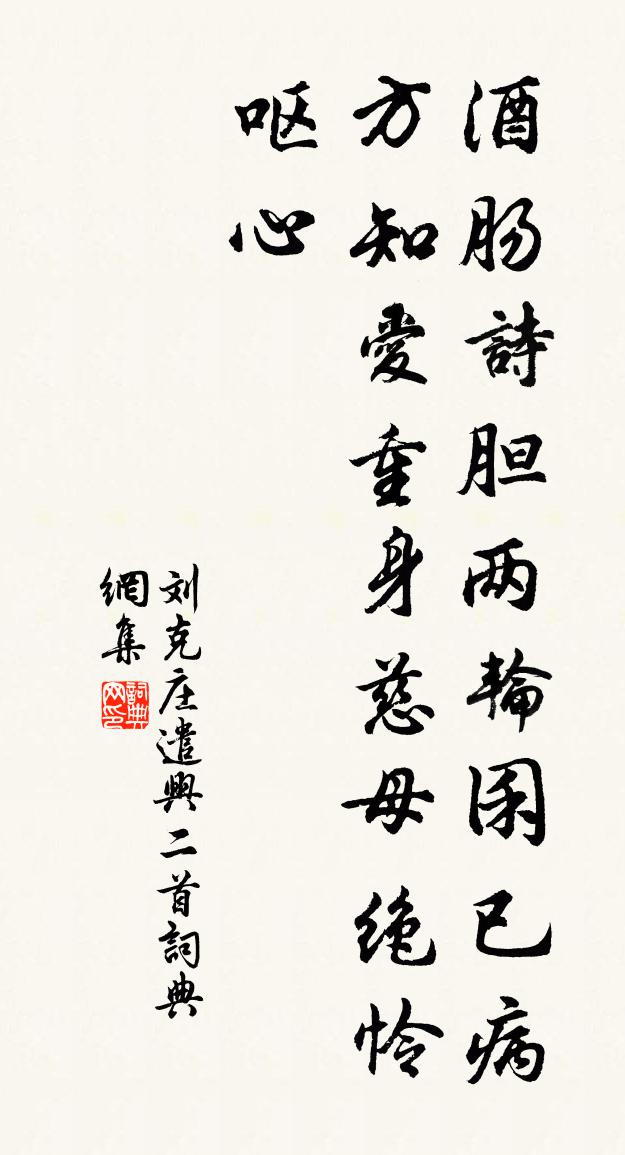 酒肠詩胆两輪囷已病
方知愛重身慈母绝怜
呕心
刘克庄遣興二首詞典
網集
詞典
网印